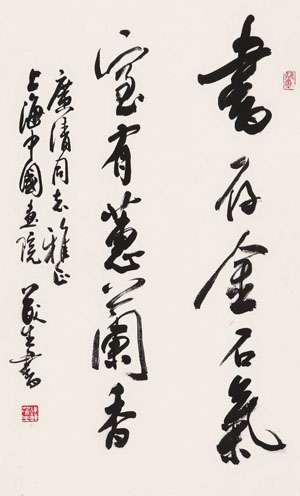 書存金石氣
室有蕙蘭香
廣清同志雅正
上海中國畫院
書